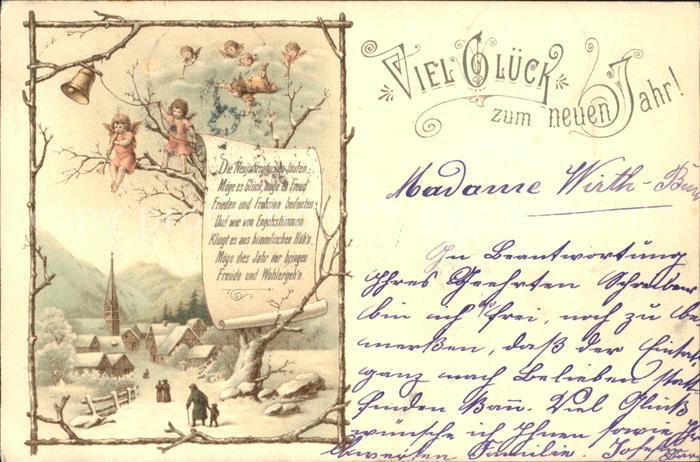 Viel Glück
zum neuen Jahr!
Die Neujahrsglocken läuten
Möge es Glück, möge es Freud
Frieden und Frohsinn bedeuten
Und wie von Engelsstimmen
Klingt es aus himmlischen Höh'n
Möge dies Jahr nur bringen
Freude und Wohlergeh'n
Madame Wirth-
In Beantwortung
Ihres Geehrten Schreibens
bin ich so frei, noch zu be
merken, daß der
ganz nach Belieben stat
finden kann. Viel Glück
wünsche ich Ihnen sowie Ih
werten Familie. Josef